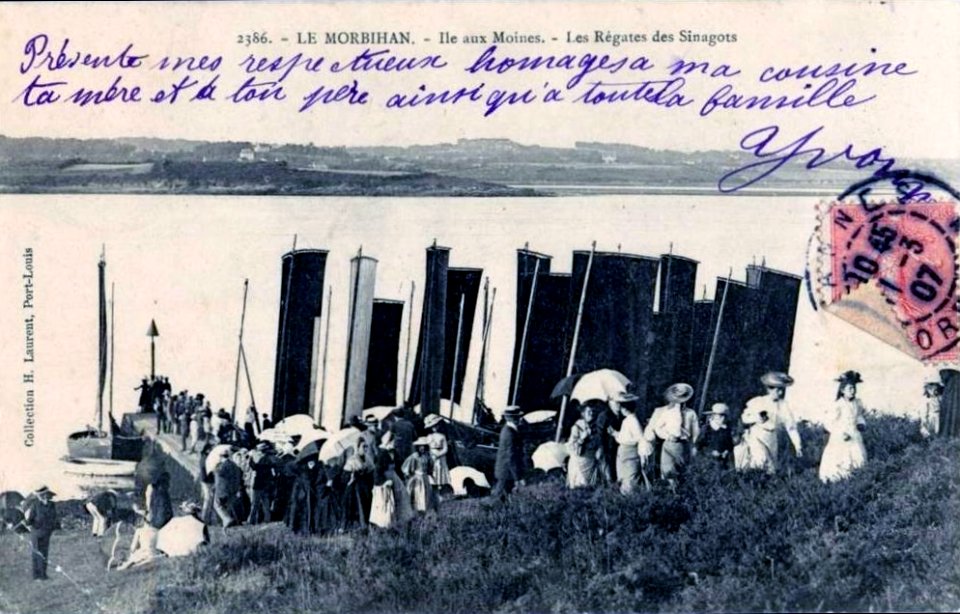 2386. - LE MORBIHAN. - Ile aux Moines. - Les Régates des Sinagots
Présente mes respectueux hommages a ma cousine
ta mère et à ton père ainsi qu'a toute la famille
Collection H. Laurent, Port-Louis
10 45
-3
07